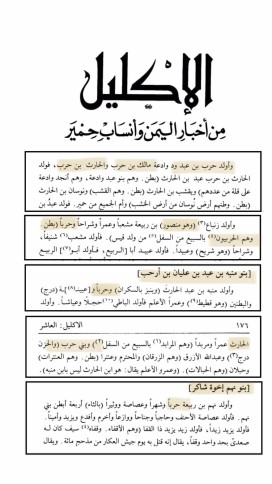 الإكليل
مِن أخبار اليمن وأنساب حِمْيَر
وأولد حرب بن عبد ود وادعة مالك بن حرب والحارث بن حرب، فولد
الحارث بن حرب عبد بن الحارث (بطن). وهم بنو عبد وادعة، وهم أنجد وادعة
على قلة من عددهم) ويقشب بن الحارث (بطن). وهم القشب) ونوسان بن الحارث
(بطن. وطنهم أرض نوسان من أرض الخشب) وأم الجميع من حمير. فولد عبد بن
وأولد زنباع(٣) (وهو منصور) بن ربيعة مشعباً وعمراً وشراحاً وحرباً (بطن.
وهم الحربيون(٥) بالسبيع من السفل(٥) من ولد قيس). فأولد مشعب(٦) شنيفاً،
وشراحاً (وهو شريح) وعبيداً. فأولد عبيد أبا [الربيع، فأولد أبو](٧) الربيع
[بنو منبه بن عبد بن عليان بن أرحب]
وأولد منبه بن عبد الحارث (وينبز بالسكران) وحرباً و[عبيداً](٨) (درج)
والبطنين (وهو قطيط(٩) وعمراً الأعلم فأولد الباطني(١٠) حجلاً وعياشاً. وأولد
١٧٦
الاكليل: العاشر
الحارث عمراً ومرثداً (وهم المراثد(١) بالسبيع من السفل(٢) وبني حرب والحزن
درج(٣) وعبدالله الأزرق (وهم الزرقان) والمحترم وعنتراً (بطن. وهم العنترات)
وحبلان (وهم الحبالات). (وعمرو الأعلم يقال: هو ابن الحارث ليس بابن منبه).
[بنو نهم إخوة شاكر]
وأولد نهم بن ربيعة حرباً وشهراً وعصاصة ووثيراً (بالثاء) أربعة أبطن بني
نهم. فأولد عصاصة الأحنف وحاجباً وجناحاً ووازعاً وأخرم وأفدع ويزيد وأميناً.
فأولد يزيد زيداً، فأولد زيد يزيد ذا القفا (وهم الأقفاء. وقفاء(٤) سيف كان له
صعدى بحد واحد وقفا، يقال إنه قتل به يوم جيش العكار من مذحج مائة. ويقال